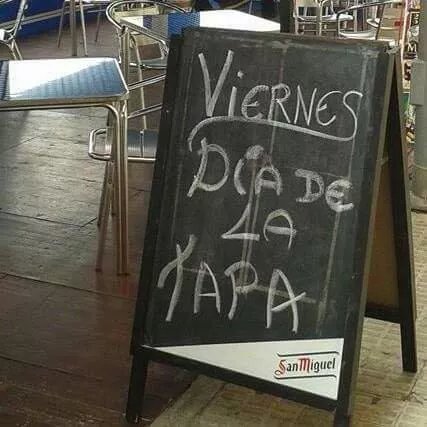 Viernes
Día de
La
Tapa
San Miguel